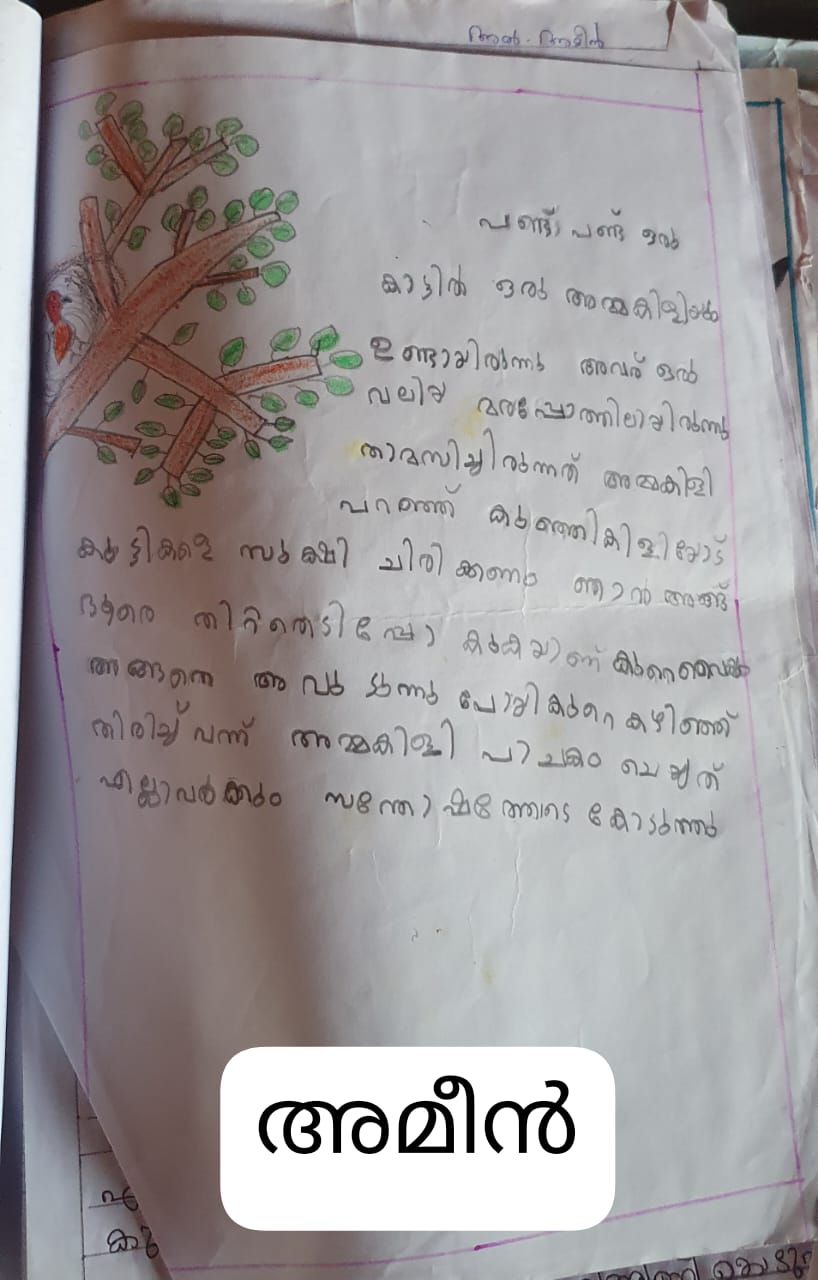 അൽ-അമീൻ
പണ്ട് പണ്ട് ഒരു
കാട്ടിൽ ഒരു അമ്മകിളിയും
ഉണ്ടായിരുന്നു അവര് ഒരു
വലിയ മരപ്പൊത്തിലായിരുന്നു
താമസിച്ചിരുന്നത് അമ്മകിളി
പറഞ്ഞ് കുഞ്ഞികിളിയോട്
കുട്ടികളെ സുക്ഷി ചിരിക്കണം ഞാൻ അങ്ങ്
ദൂരെ തിറ്റതെടി പ്പോ കുകയാണ്
അങ്ങനെ അ വൂ ടുന്നു പോയി കുറെ കഴിഞ്ഞ്
തിരിച്ച് വന്ന് അമ്മകിളി പാചകം ചെയ്ത്
എല്ലാവർക്കും സന്തോഷത്തോടെ കോടുത്തു
അമീൻ